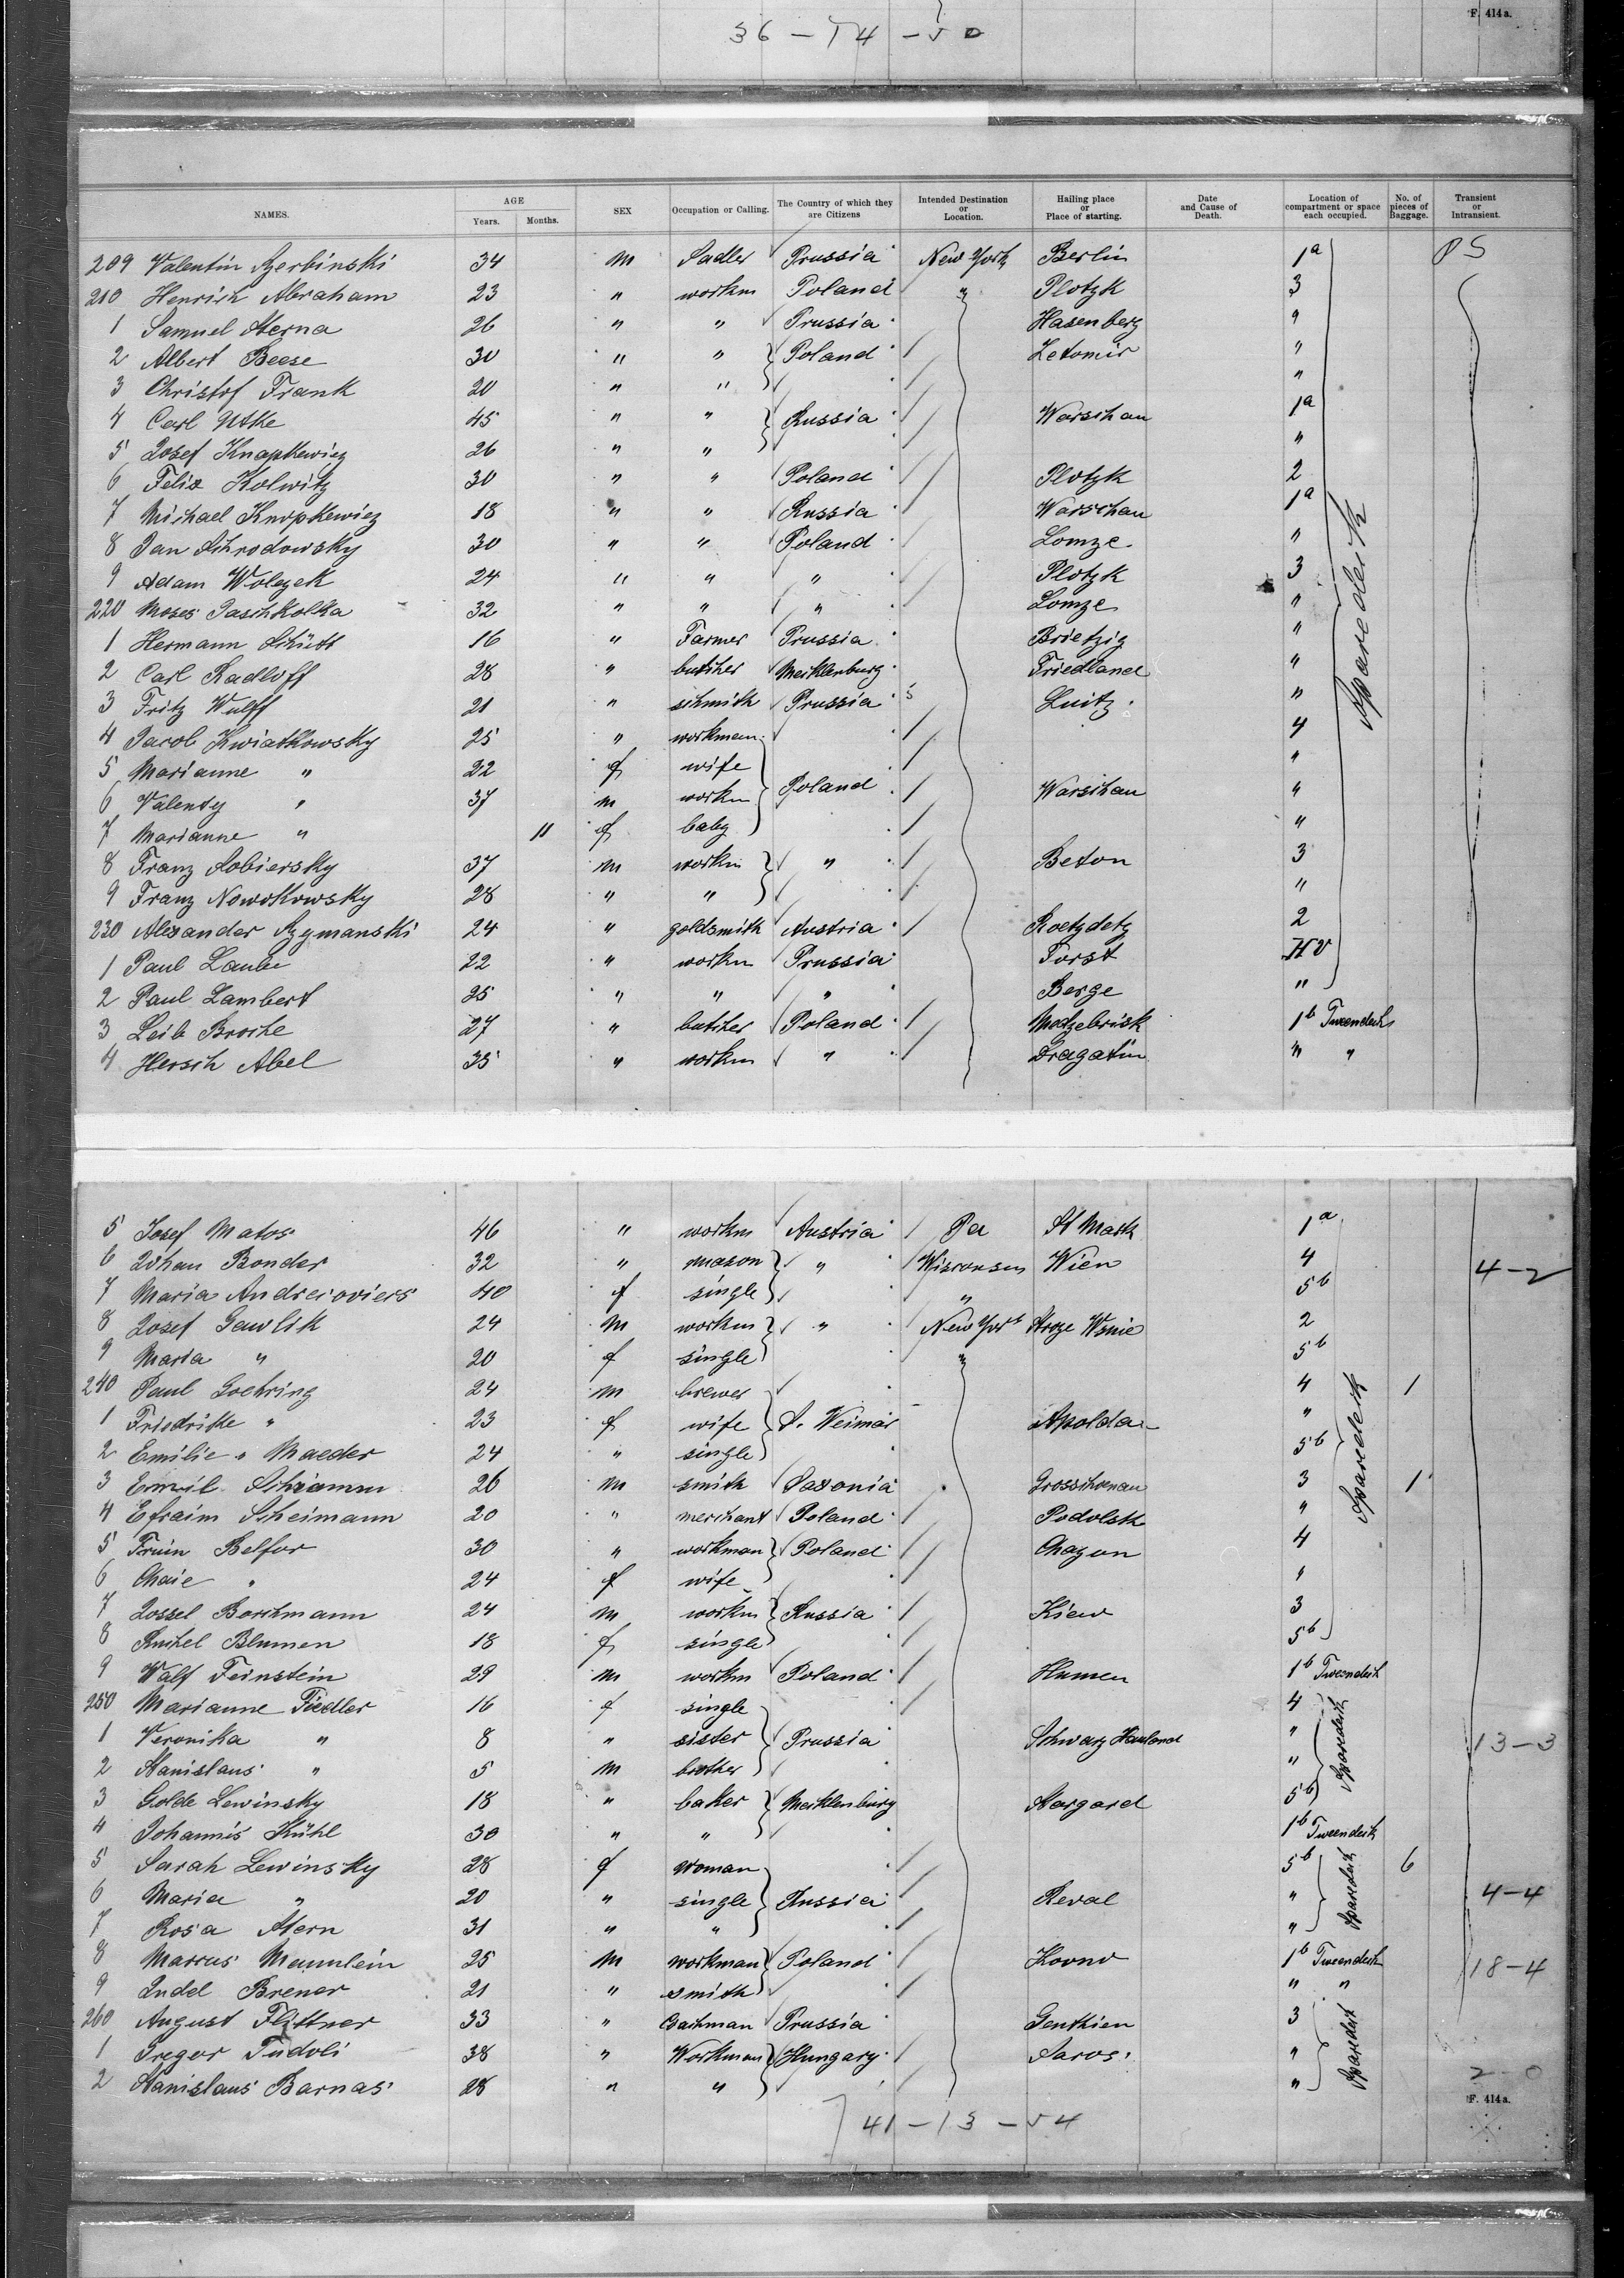 36 – 14 – 50
F. 414a.
NAMES. AGE Years. Months. SEX Occupation or Calling. The Country of which they are Citizens Intended Destination or Location. Hailing place or Place of starting. Date and Cause of Death. Location of compartment or space each occupied. No. of pieces of Baggage. Transient or Intransient.
209 Valentin Szerbinski 34 m Sadler Prussia New York Berlin 1a PS
210 Henrich Abraham 23 " workm Poland " Plotzk 3
1 Samuel Sterna 26 " " Prussia Hasenberg "
2 Albert Beese 30 " " Poland Zetomir "
3 Christof Frank 20 " " "
4 Carl Utke 45 " " Russia Warschau 1a
5 Josef Knapkewicz 26 " " "
6 Felix Kolwitz 30 " " Poland Plotzk 2
7 Michael Knopkewicz 18 " " Russia Warschau 1a
8 Jan Schrodowsky 30 " " Poland Lomze "
9 Adam Wolczek 24 " " " Plotzk 3
220 Moses Jaschkolka 32 " " " Lomze "
1 Hermann Schütt 16 " Farmer Prussia Brietzig "
2 Carl Radloff 28 " butcher Mecklenburg Friedland "
3 Fritz Wulff 21 " schmith Prussia 5 Luitz "
4 Jacob Kwiatkowsky 25 " workman 4
5 Marianne " 22 f wife "
6 Valenty " 37 m workm Poland Warschau "
7 Marianne " 11 f baby "
8 Franz Sobiersky 37 m workm " Beton 3
9 Franz Nowokowsky 28 " " "
230 Alexander Szymanski 24 " goldsmith Austria Roetzdetz 2
1 Paul Laube 22 " workm Prussia Forst HV
2 Paul Lambert 25 " " " Berge "
Sparedeck
3 Leib Broche 27 " butcher Poland Modzebrisk 1b Tweendeck
4 Hersch Abel 35 " workm " Dragatin " "
5 Josef Matos 46 " workm Austria Pa St Mark 1a
6 Johan Bonder 32 " mason " Wisconsen Wien 4 4–2
7 Maria Andreioviers 40 f single " 5b
8 Josef Gawlik 24 m workm " New York Stroze Wsnie 2
9 Maria " 20 f single " 5b
240 Paul Goehring 24 m brewer 4 1
1 Friedrike " 23 f wife S. Weimar Apolda "
2 Emilie " Maeder 24 " single 5b
3 Emil Schramm 26 m smith Saxonia Grosschonau 3 1
4 Efraim Scheimann 20 " merchant Poland Podolsk "
5 Fruin Belfor 30 " workman Poland Chazon 4
6 Chaie " 24 f wife "
7 Jossel Borchmann 24 m workm Russia Kiew 3
8 Ruchel Blumen 18 f single 5b
Sparedeck
9 Walf Feinstein 29 m workm Poland Humen 1b Tweendeck
250 Marianne Fiedler 16 f single 4
1 Veronika " 8 " sister Prussia Schwarz Hauland " 13–3
2 Stanislaus " 5 m brother "
3 Golde Lewinsky 18 " baker Mecklenburg Stargard 5b
Sparedeck
4 Johannis Kühl 30 " " 1b Tweendeck
5 Sarah Lewinsky 28 f woman 5b 6
6 Maria " 20 " single Russia Reval " 4–4
7 Rosa Stern 31 " " "
Sparedeck
8 Marcus Mannlein 25 m workman Poland Kovno 1b Tweendeck 18–4
9 Judel Brener 21 " smith " "
260 August Flittner 33 " Coachman Prussia Genthien 3
1 Gregor Tudoli 38 " Workman Hungary Saros "
2 Stanislaus Barnas 28 " " " 2–0
Sparedeck
F. 414a.
41 – 13 – 54